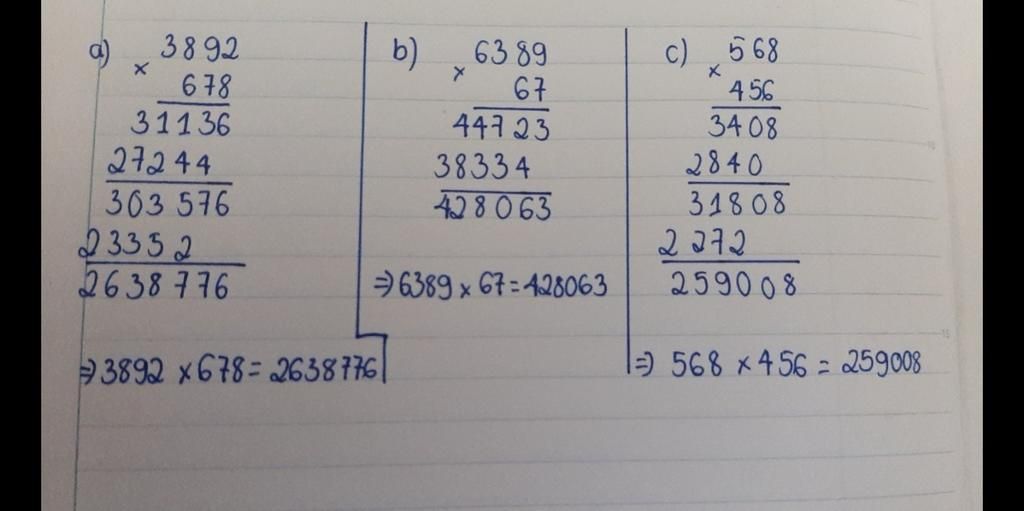 a) 3892
×
678
31136
27244
303576
23352
2638776
⇒ 3892 × 678 = 2638776
b) 6389
×
67
44723
38334
428063
⇒ 6389 × 67 = 428063
c) 568
×
456
3408
2840
31808
2272
259008
⇒ 568 × 456 = 259008